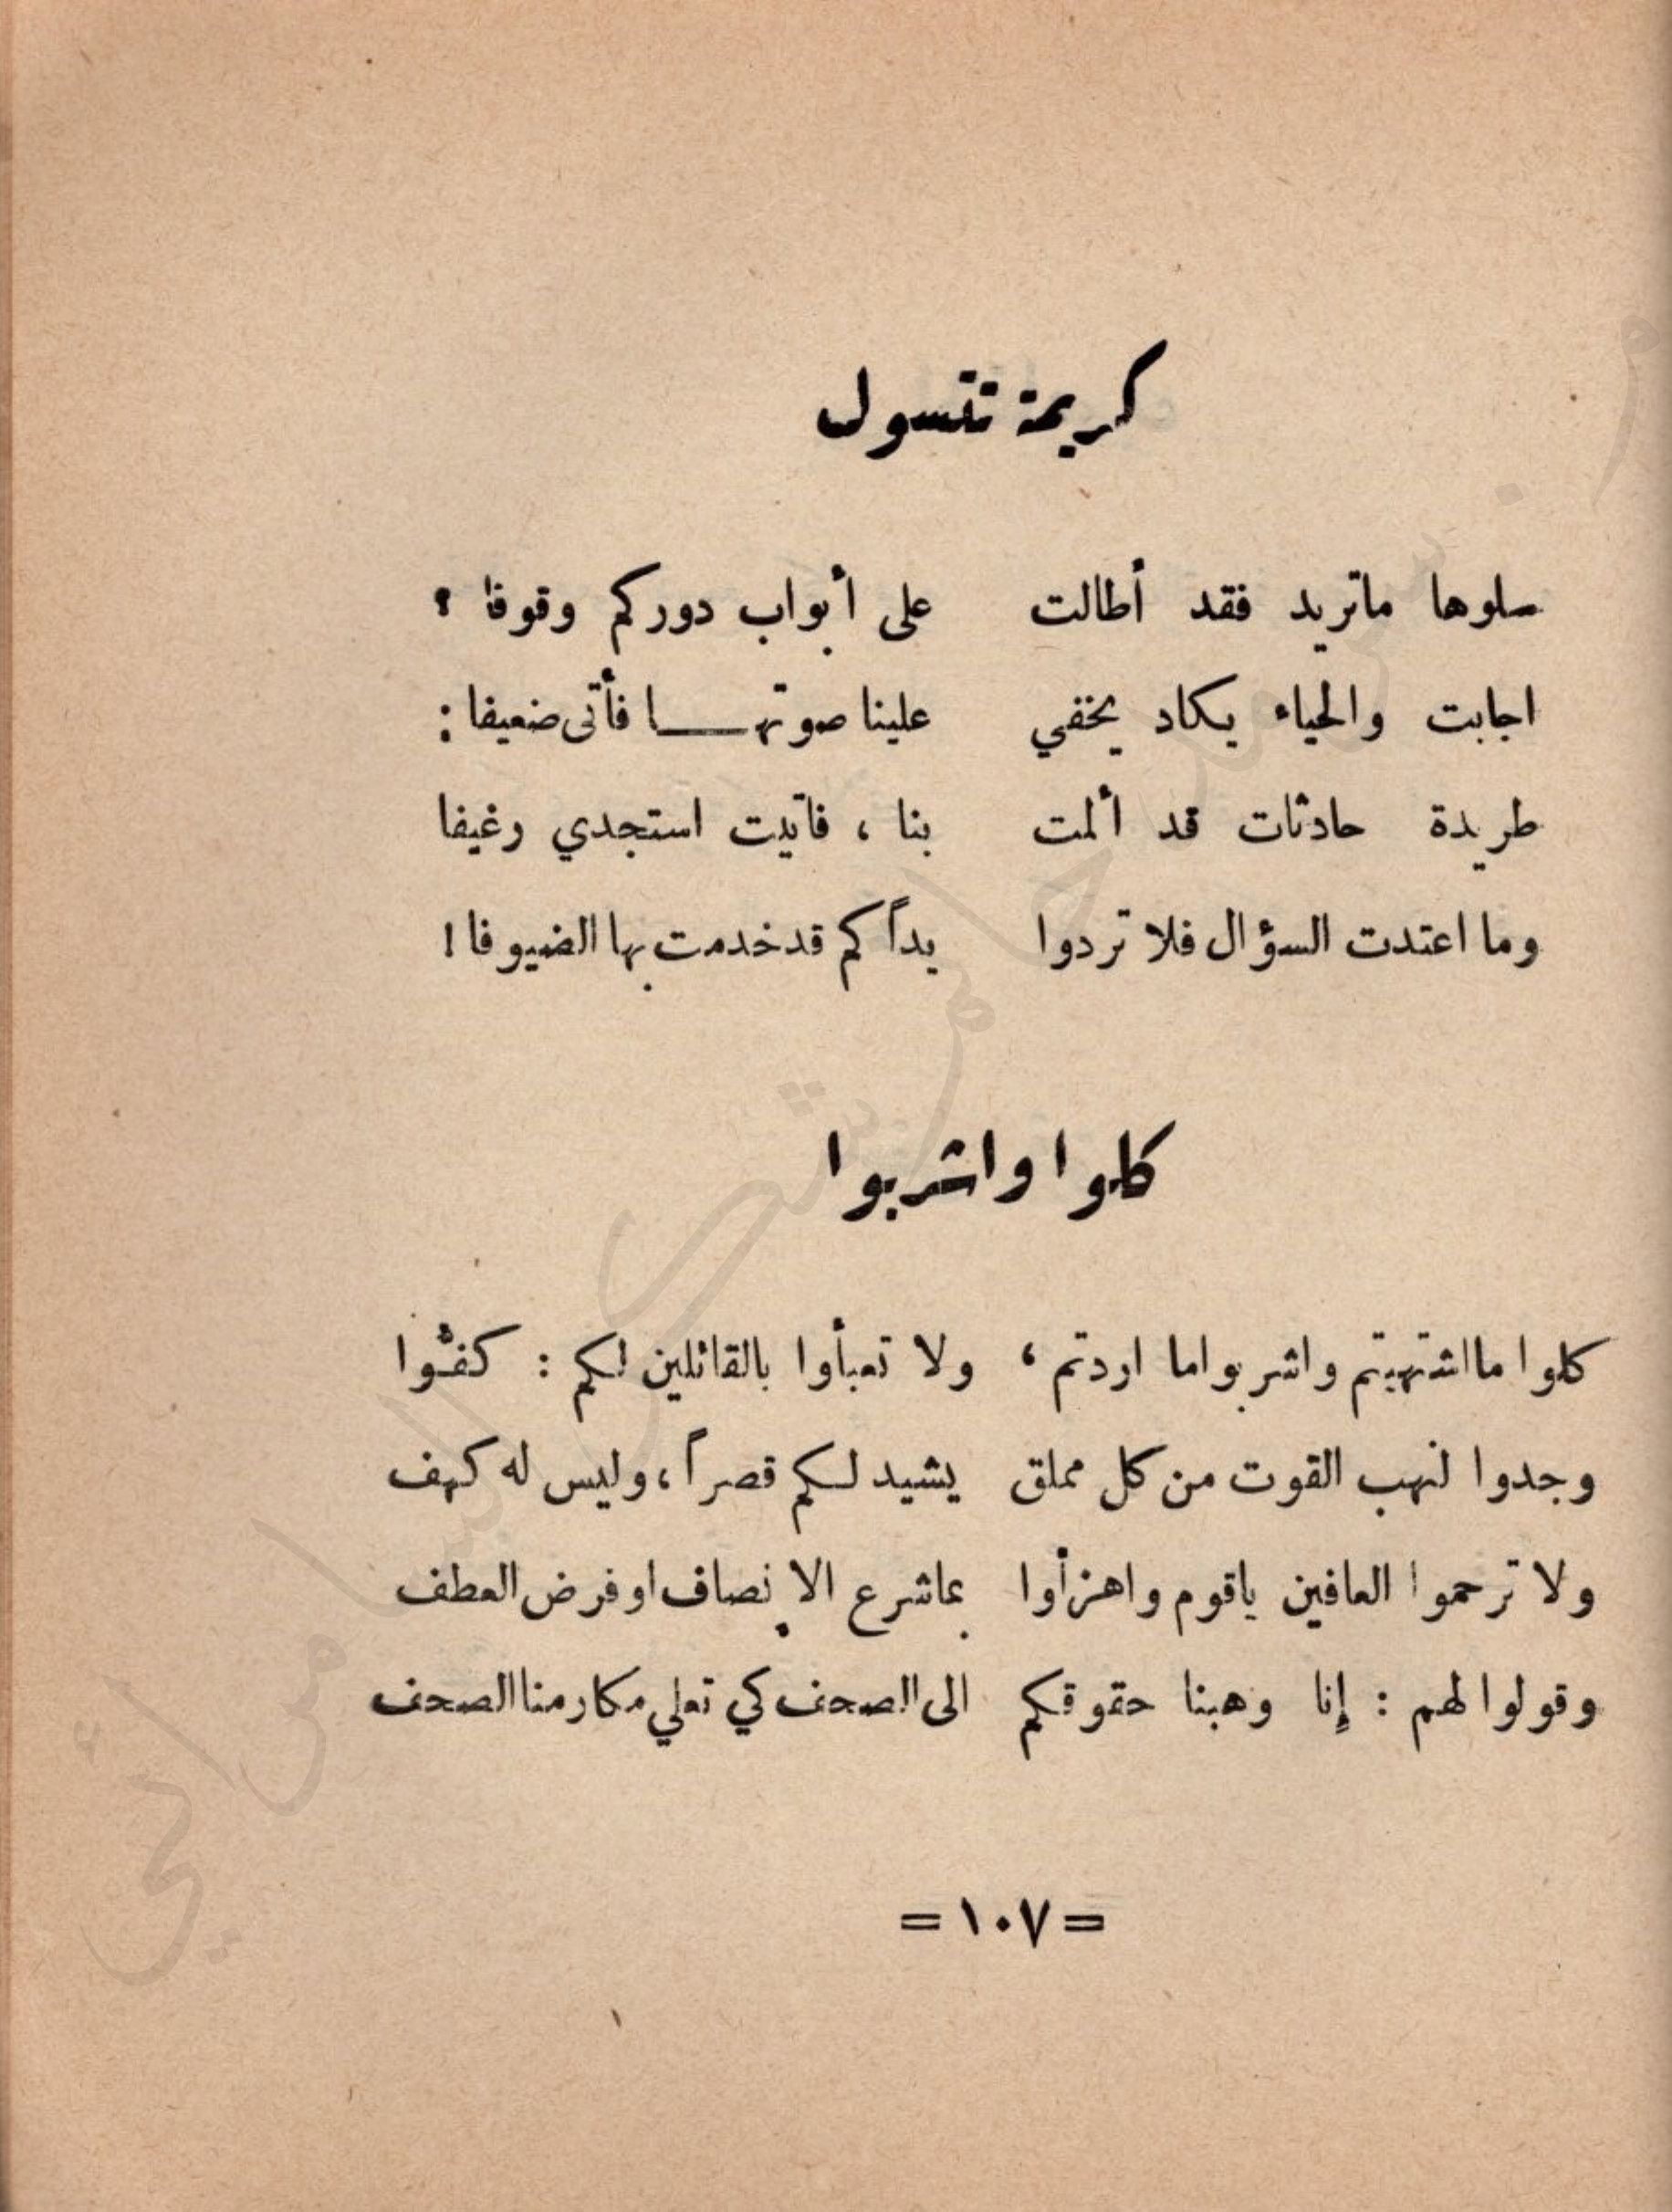 كريمة تتسول
سلوها ماتريد فقد أطالت على أبواب دوركم وقوفا ؟
اجابت والحياء يكاد يخفي علينا صوتهـــا فأتى ضعيفا :
طريدة حادثات قد ألمت بنا ، فأتيت استجدي رغيفا
وما اعتدت السؤال فلا تردوا يداً كم قد خدمت بها الضيوفا !
كلوا واشربوا
كلوا مااشتهيتم واشربواما اردتم ، ولا تعبأوا بالقائلين لكم : كفّوا
وجدوا لنهب القوت من كل مملق يشيد لكم قصراً ، وليس له كهف
ولا ترحموا العافين ياقوم واهزأوا بماشرع الإنصاف او فرض العطف
وقولوا لهم : إنا وهبنا حقوقكم الى الصحف كي تعلي مكارمنا الصحف
= ١٠٧ =